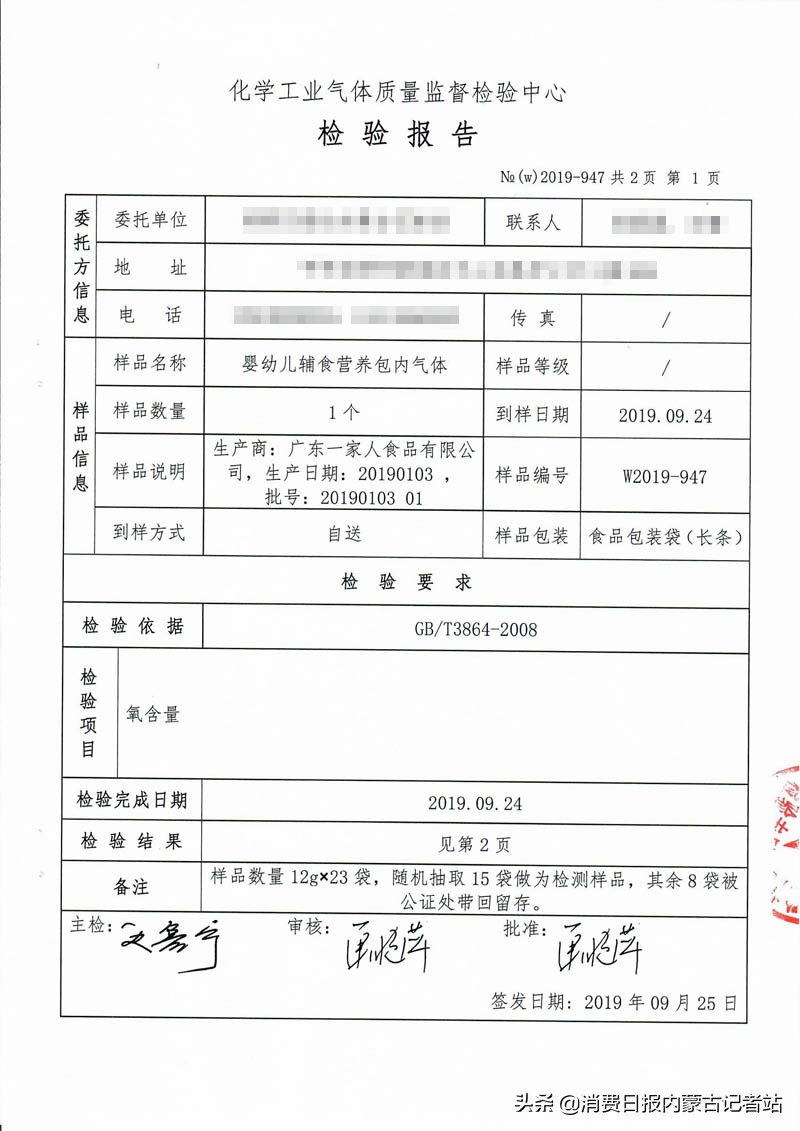 化学工业气体质量监督检验中心
检 验 报 告
№(w)2019-947 共 2 页 第 1 页
委托方信息
委托单位
联系人
地 址
电 话
传 真
/
样品信息
样品名称
婴幼儿辅食营养包内气体
样品等级
/
样品数量
1 个
到样日期
2019.09.24
样品说明
生产商：广东一家人食品有限公
司，生产日期：20190103 ，
批号：20190103 01
样品编号
W2019-947
到样方式
自送
样品包装
食品包装袋(长条)
检 验 要 求
检 验 依 据
GB/T3864-2008
检验项目
氧含量
检验完成日期
2019.09.24
检 验 结 果
见第 2 页
备注
样品数量 12g×23 袋，随机抽取 15 袋做为检测样品，其余 8 袋被
公证处带回留存。
主检：
审核：
批准：
签发日期：2019 年 09 月 25 日
头条 @消费日报内蒙古记者站